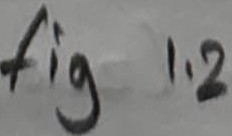 fig 1.2